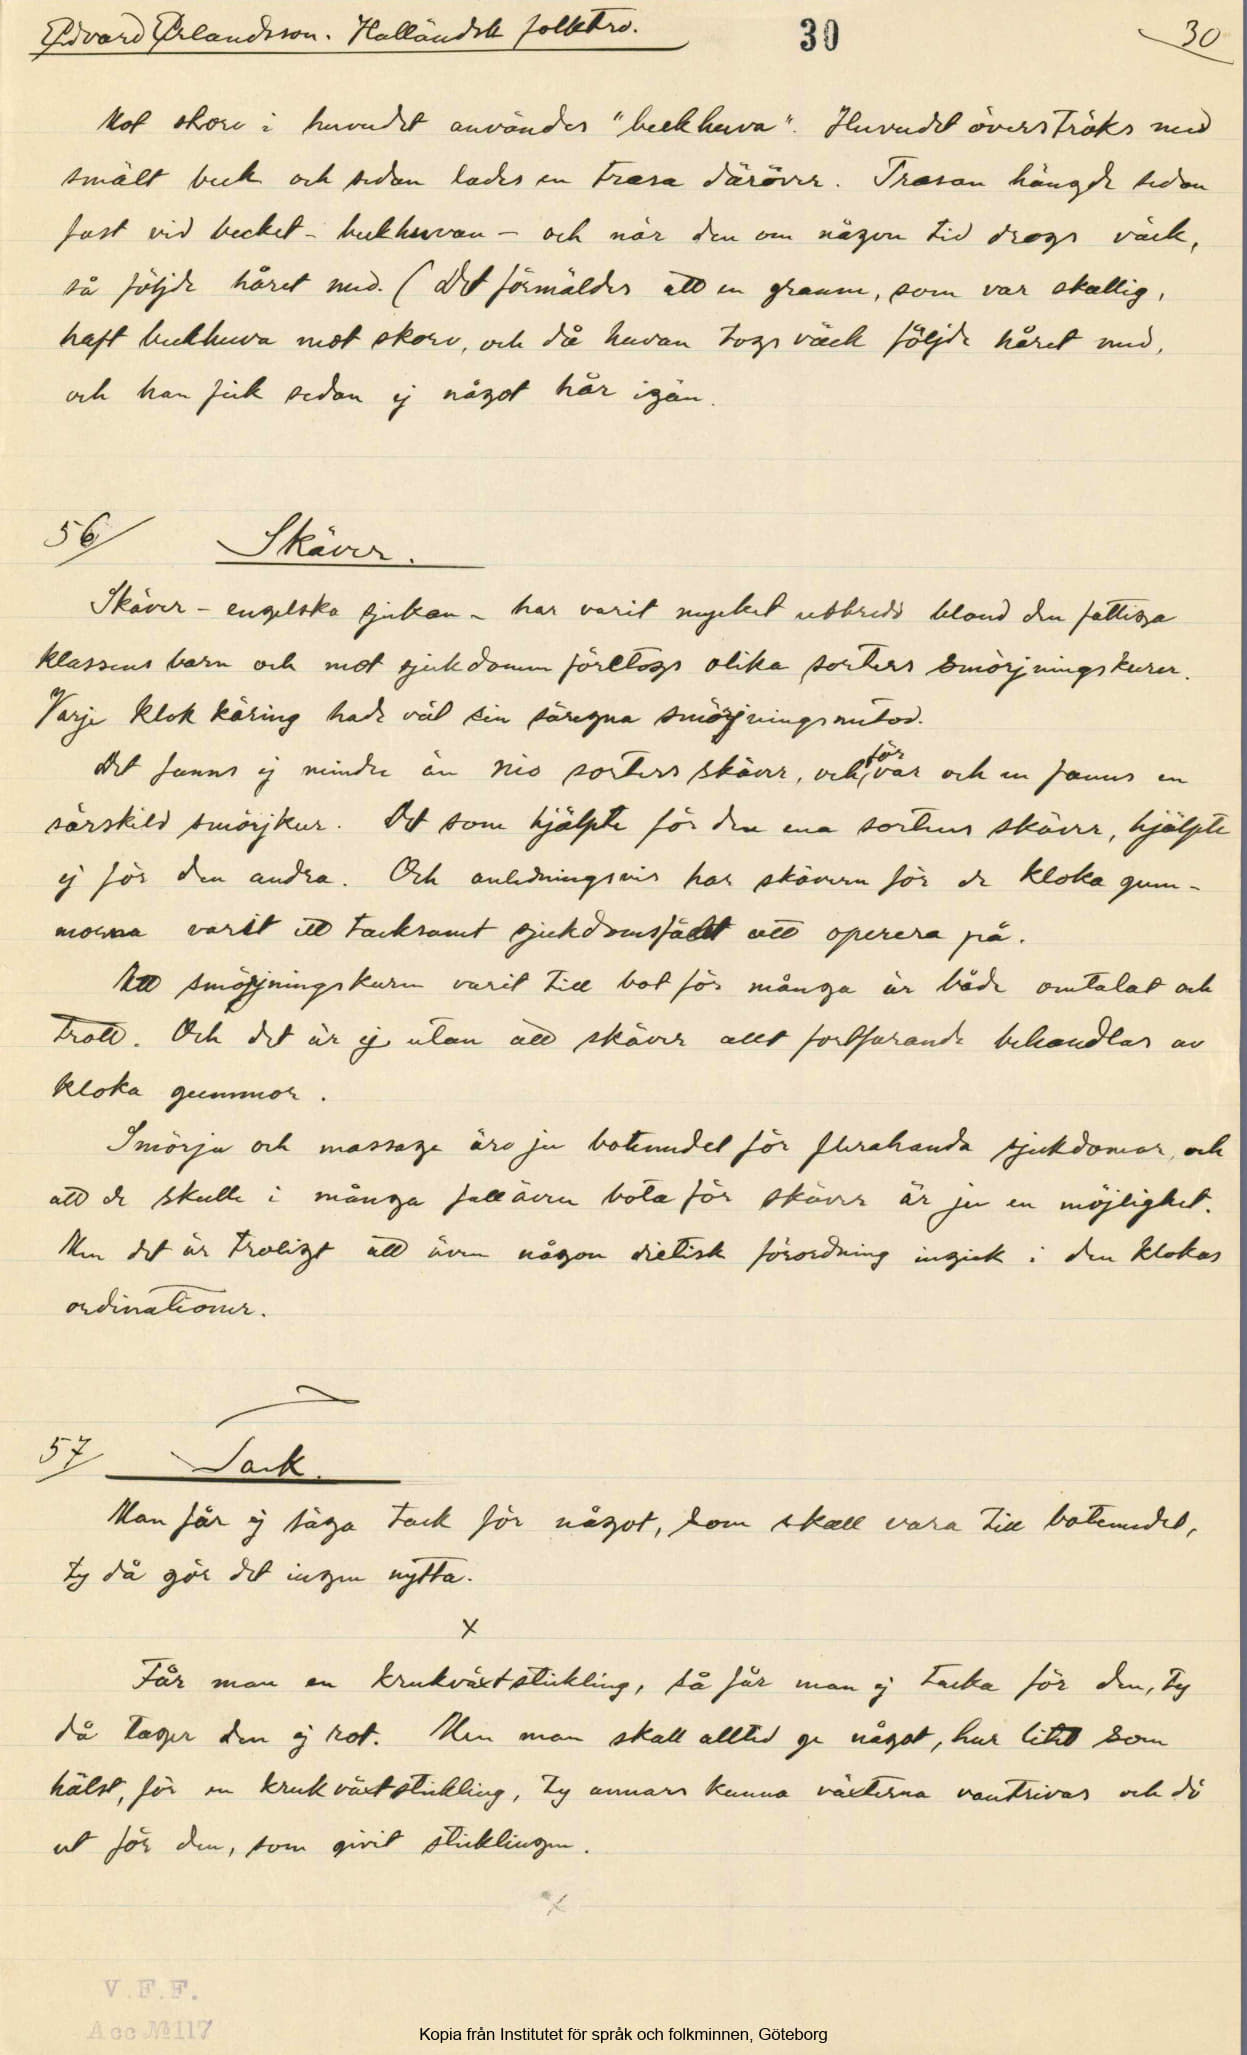 Edvard Erlandsson. Halländsk folktro.
30
30
Mot skorv i huvudet användes "beckhuva". Huvudet överströks med
smält beck och sedan lades en trasa däröver. Trasan hängde sedan
fast vid becket - beckhuvan - och när den om någon tid drogs väck,
så följde håret med. (Det förmäldes att en granne, som var skallig,
haft beckhuva mot skorv, och då huvan togs väck följde håret med,
och han fick sedan ej något hår igän.
56/ Skäver.
Skäver - engelska sjukan - har varit mycket utbredd bland den fattiga
klassens barn och mot sjukdomen företogs olika sorters smörjningskurer.
Varje klok käring hade väl sin säregna smörjningsmetod.
Det fanns ej mindre än nio sorters skäver, och för var och en fanns en
särskild smörjkur. Det som hjälpte för den ena sortens skäver, hjälpte
ej för den andra. Och anledningsvis har skävern för de kloka gum-
morna varit ett tacksamt sjukdomsfält att operera på.
Att smörjningskuren varit till bot för många är både omtalat och
trott. Och det är ej utan att skäver allt fortfarande behandlas av
kloka gummor.
Smörja och massage äro ju botemedel för flerahanda sjukdomar, och
att de skulle i många fall även bota för skäver är ju en möjlighet.
Men det är troligt att även någon dietisk förordning ingick i den klokas
ordinationer.
57/ Tack.
Man får ej säga tack för något, som skall vara till botemedel,
ty då gör det ingen nytta.
x
Får man en krukväxtstickling, så får man ej tacka för den, ty
då tager den ej rot. Men man skall alltid ge något, hur litet som
hälst, för en krukväxtstickling, ty annars kunna växterna vantrivas och dö
ut för den, som givit sticklingen.
x
V.F.F.
Acc № 117
Kopia från Institutet för språk och folkminnen, Göteborg